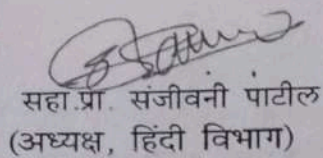 सहा.प्रा. संजीवनी पाटील
(अध्यक्ष, हिंदी विभाग)